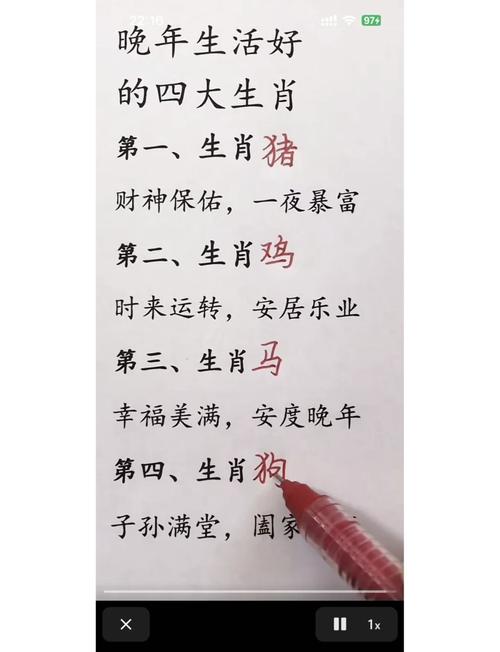 22:16
97
晚年生活好
的四大生肖
第一、生肖猪
财神保佑，一夜暴富
第二、生肖鸡
时来运转，安居乐业
第三、生肖马
幸福美满，安度晚年
第四、生肖狗
子孙满堂，阖家
1x